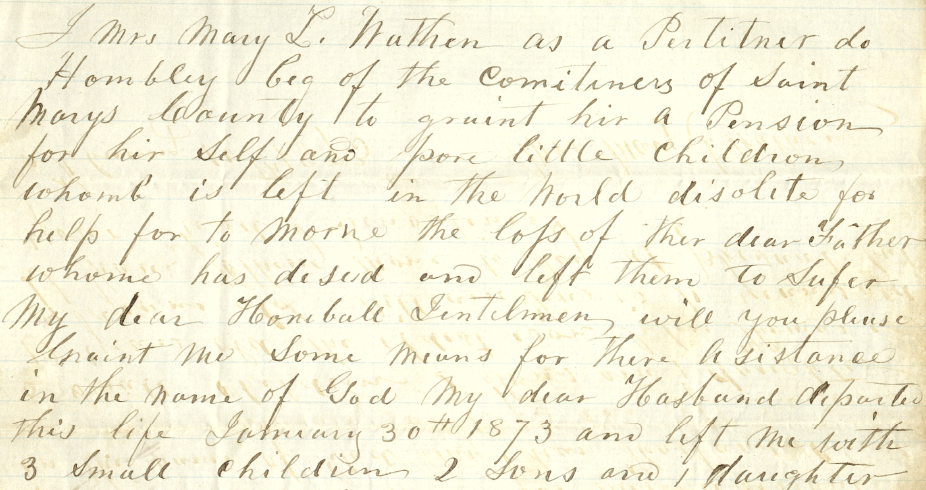 I Mrs Mary L. Wathen as a Pertitner do
Hombley beg of the Comitiners of Saint
Marys County to graint hir a Pension
for hir Self and pore little children,
whomb is left in the World disolite for
help for to Morne the loss of ther dear Father
whome has desed and left them to Super
My dear Honeball Gentelmen, will you please
Graint me Some means for there Asistance
in the name of God My dear Hasband departed
this life January 30th 1873 and left me with
3 Small children 2 Sons and 1 daughter